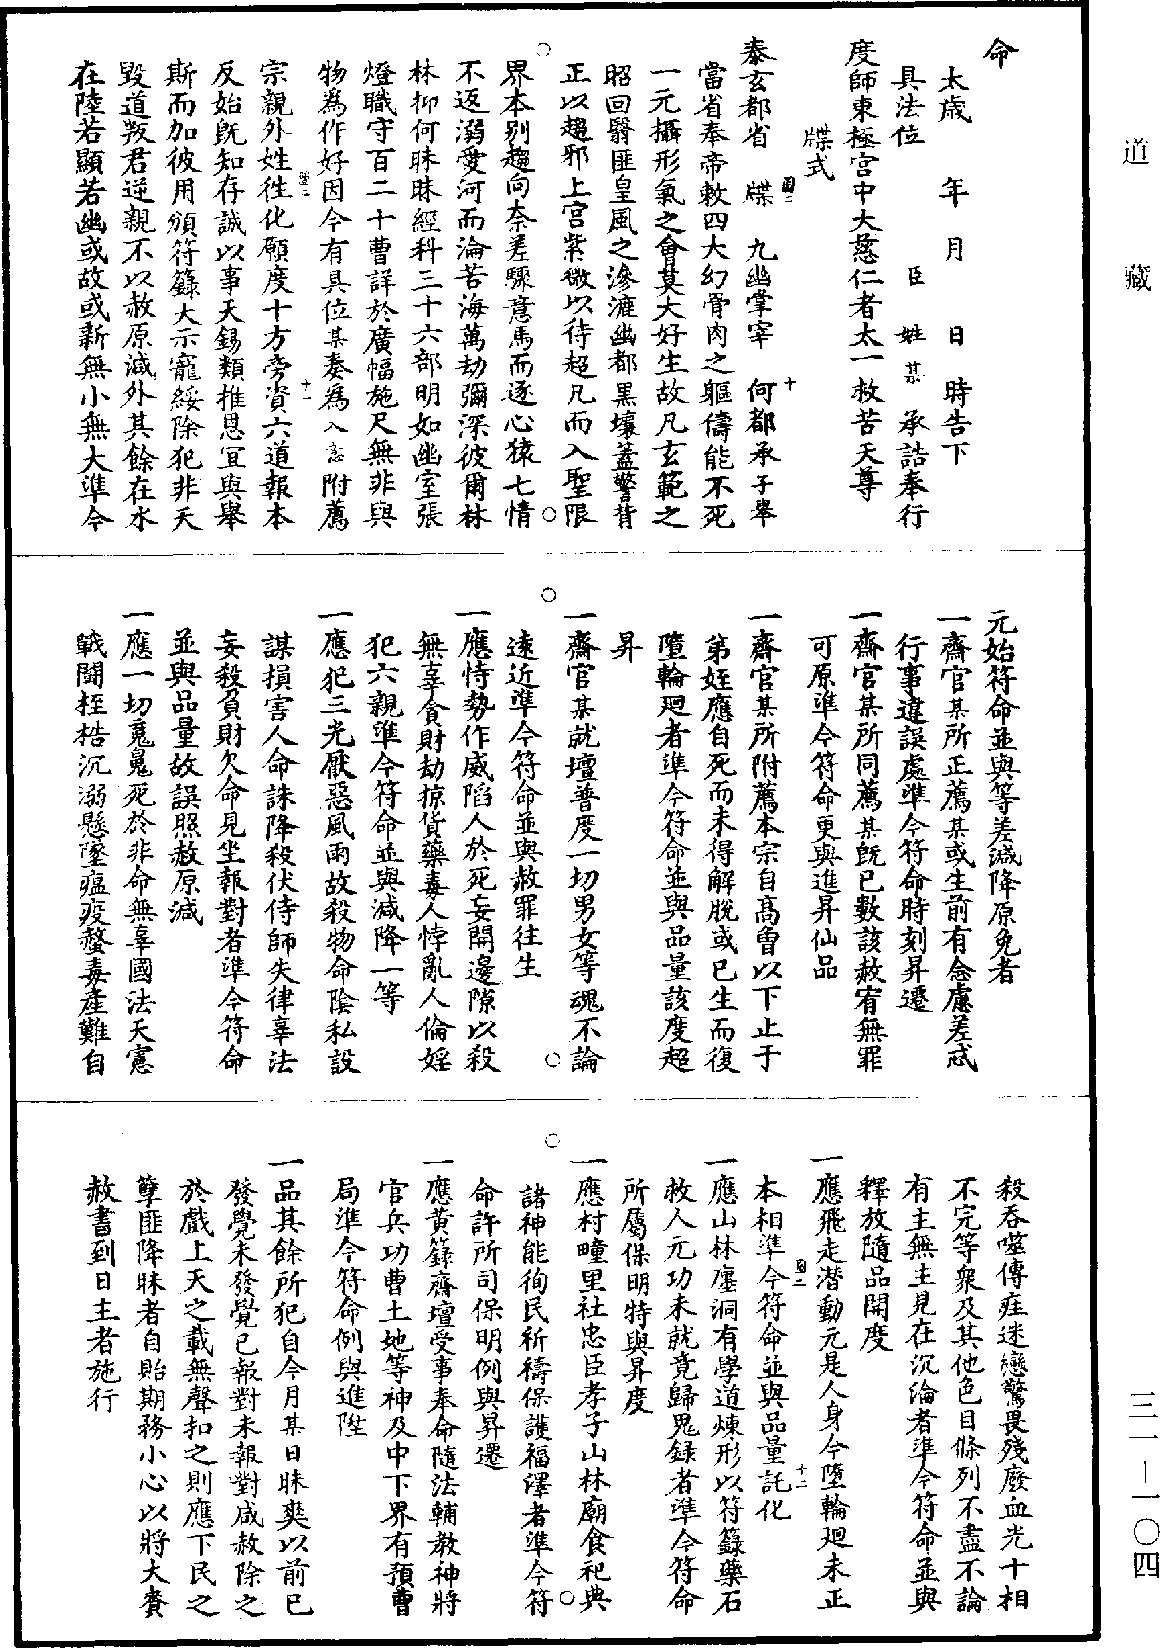 道藏
命
太歲　年　月　日　時告下
具法位　臣　姓　某　承誥奉行
度師東極宮中大慈仁者太一救苦天尊
牒式
泰玄都省　牒　九幽掌宰　何都承子舉
當省奉帝敕四大幻骨肉之軀儔能不死
一元攝形氣之會莫大好生故凡玄範之
昭回翳匪皇風之滲漉幽都黑壤蓋警背
正以趨邪上宮紫微以待超凡而入聖限
界本别趨向奈差驟意馬而逐心猿七情
不返溺愛河而淪苦海萬劫彌深彼爾林
林抑何昧昧經科三十六部明如幽室張
燈職守百二十曹詳於廣幅施尺無非與
物為作好因今有具位某奏為入意附薦
宗親外姓徃化願度十方旁資六道報本
反始既知存誠以事天錫類推恩冝與舉
斯而加彼用頒符籙大示寵綏除犯非天
毀道叛君逆親不以赦原減外其餘在水
在陸若顯若幽或故或新無小無大準今
元始符命並與等差減降原免者
一齋官某所正薦某或生前有念慮差忒
行事違誤處準今符命時刻昇遷
一齋官某所同薦某既已數該赦宥無罪
可原準今符命更與進昇仙品
一齋官某所附薦本宗自高曾以下止于
第姪應自死而未得解脫或已生而復
墮輪廻者準今符命並與品量該度超
昇
一齋官某就壇普度一切男女等魂不論
遠近準今符命並與赦罪往生
一應恃勢作威陷人於死妄開邊隙以殺
無辜貪財劫掠貨藥毒人悖亂人倫婬
犯六親準今符命並與減降一等
一應犯三光厭惡風雨故殺物命陰私設
謀損害人命誅降殺伏侍師失律辜法
妄殺負財欠命見坐報對者準今符命
並與品量故誤照赦原減
一應一切冤鬼死於非命無辜國法天憲
戰鬪桎梏沉溺懸墜瘟疫螫毒産難自
殺吞噬傳疰迷戀驚畏殘廢血光十相
不完等衆及其他色目條列不盡不論
有主無主見在沉淪者準今符命並與
釋放隨品開度
一應飛走潛動元是人身今墮輪廻未正
本相準今符命並與品量託化
一應山林廛洞有學道煉形以符籙藥石
救人元功未就竟歸鬼録者準今符命
所屬保明特與昇度
一應村疃里社忠臣孝子山林廟食祀典
諸神能徇民祈禱保護福澤者準今符
命許所司保明例與昇遷
一應黃籙齋壇受事奉命隨法輔教神將
官兵功曹土地等神及中下界有預曹
局準今符命例與進陞
一品其餘所犯自今月某日昧爽以前已
發覺未發覺已報對未報對咸赦除之
於戲上天之載無聲扣之則應下民之
孽匪降昧者自貽期務小心以將大賚
赦書到日主者施行
三一—一〇四